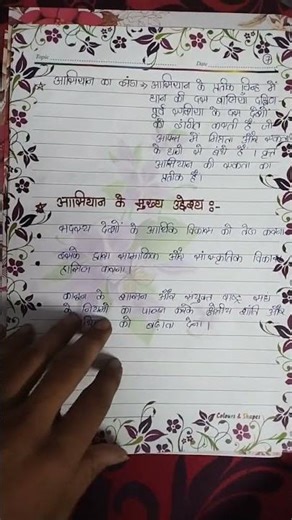 Topic Date
आसियान का झंडा :- आसियान के प्रतीक चिन्ह में
धान की दस बालियां दक्षिण
पूर्व एशिया के दस देशों
को इंगित करती है जो
आपस में मित्रता और एकता
के धागे से बंधे हैं।
आसियान की एकता का
प्रतीक है।
आसियान के मुख्य उद्देश्य :-
सदस्य देशों के आर्थिक विकास को तेज करना
इसके द्वारा सामाजिक और सांस्कृतिक विकास
हासिल करना।
कानून के शासन और संयुक्त राष्ट्र संघ
के नियमों का पालन करके क्षेत्रीय शांति और
को बढ़ावा देना।
Colours & Shapes